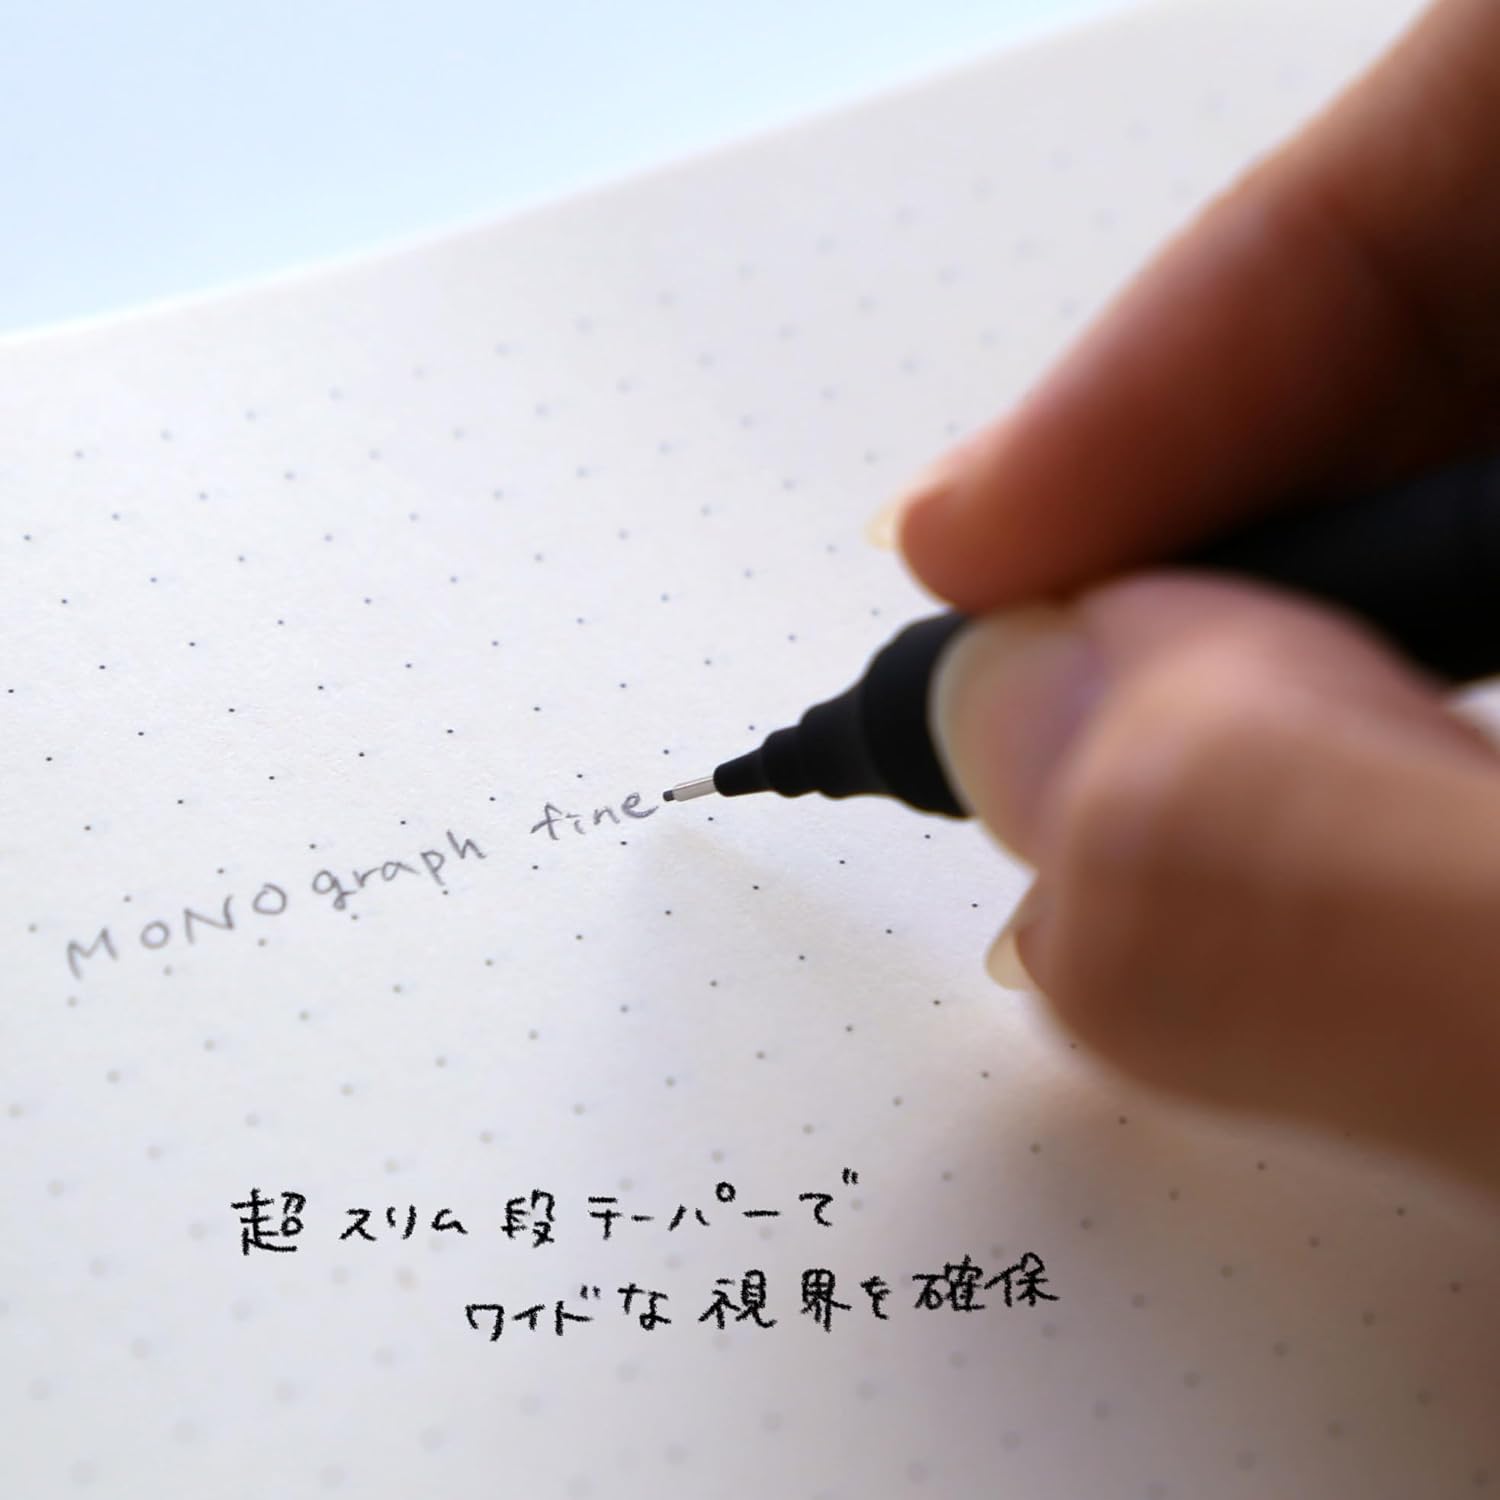 MONOgraph fine
超スリム段テーパーで
ワイドな視界を確保